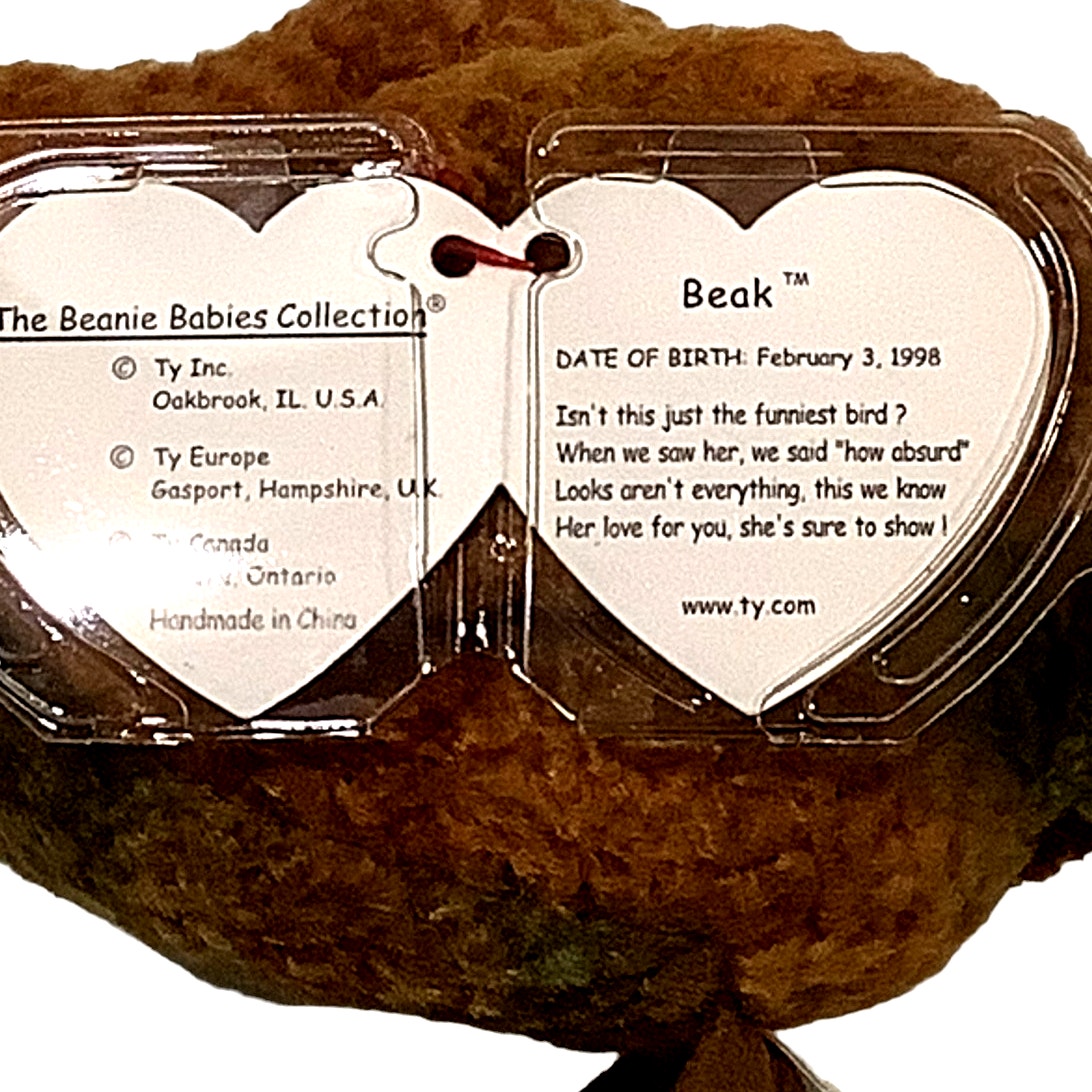 The Beanie Babies Collection®
© Ty Inc.
Oakbrook, IL. U.S.A.
© Ty Europe
Gasport, Hampshire, U.K.
© Ty Canada
Ontario
Handmade in China
Beak™
DATE OF BIRTH: February 3, 1998
Isn't this just the funniest bird ?
When we saw her, we said "how absurd"
Looks aren't everything, this we know
Her love for you, she's sure to show !
www.ty.com